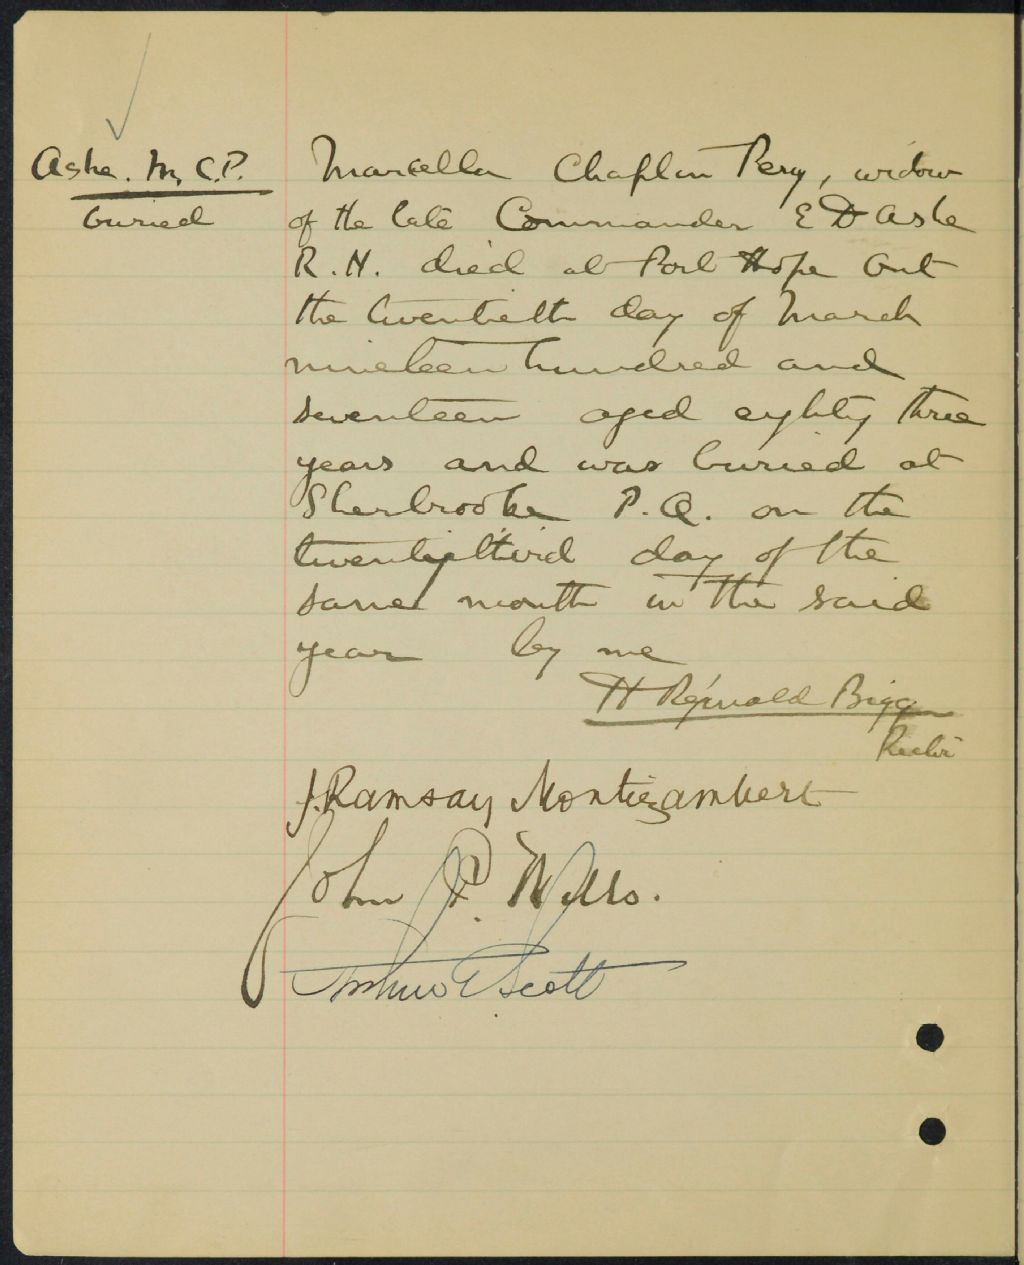 Ashe. M. C. P.
buried
Marcella Chaplin Pery, widow
of the late Commander E D Ashe
R. N. died at Port Hope Ont
the twentieth day of March
nineteen hundred and
seventeen aged eighty three
years and was buried at
Sherbrooke P. Q. on the
twentythird day of the
same month in the said
year by me
H Reginald Bigg
Rector
J. Ramsay Montizambert
John P. Wills.
Arthur E Scott